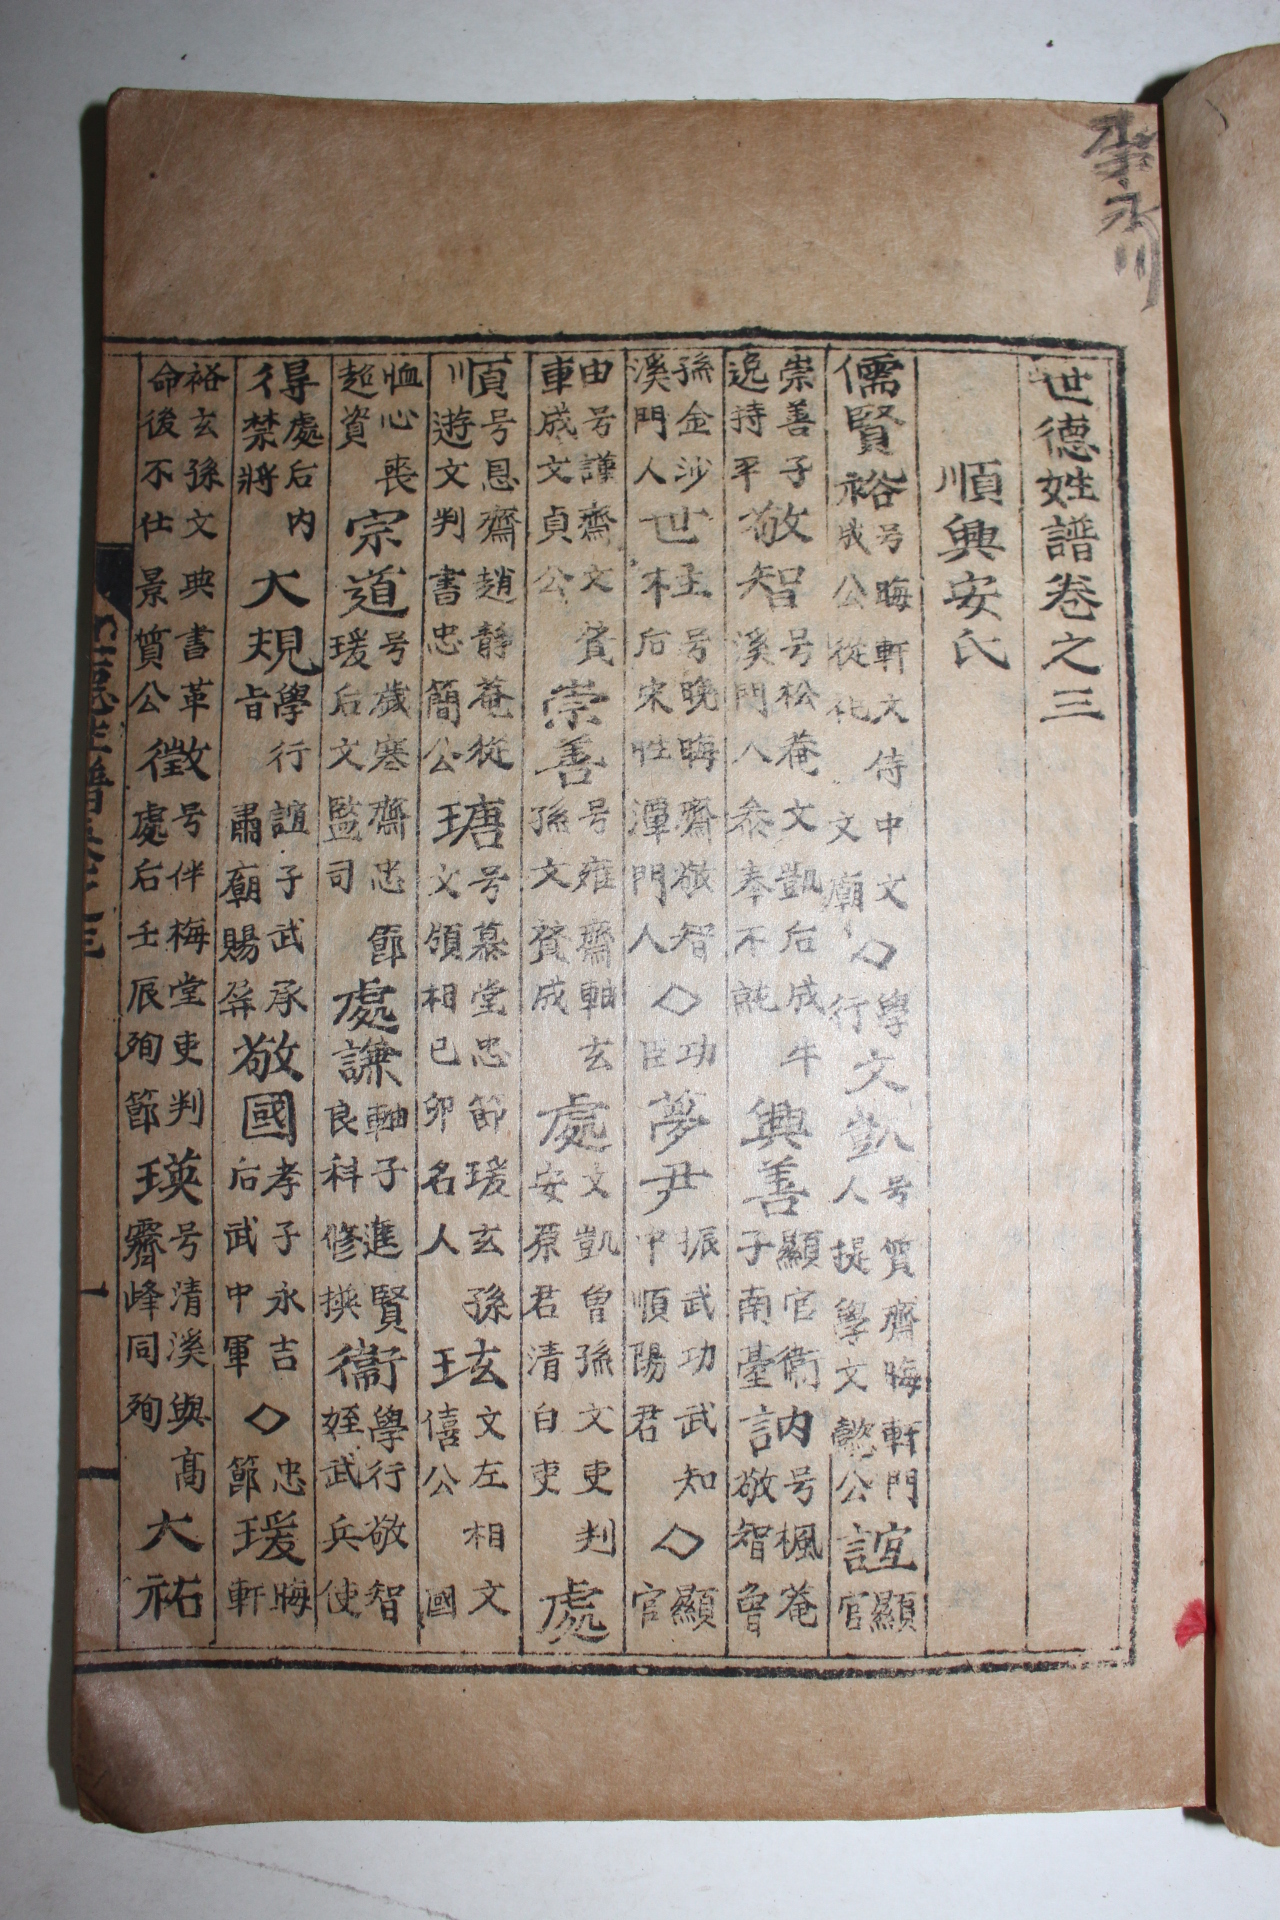 世德姓譜卷之三
順興安氏
儒賢裕号晦軒文侍中文成公從祀文廟◇學行文凱号質齋晦軒門人提學文懿公誼顯官
崇善子逸持平敬智号松菴文凱后成牛溪門人參奉不就興善顯官衛子南臺訒号楓菴敬智曾
孫金沙溪門人世主号晚晦齋敬智后宋性潭門人◇功臣夢尹振武功武知中順陽君◇顯官
由号謹齋文成文貞公贊崇善号雍齋軸玄孫文贊成處文凱曾孫文吏判安原君清白吏處
順号恩齋趙靜菴從遊文判書忠簡公瑭号慕堂忠節瑗玄孫文領相己卯名人玹文左相文僖公國
恤心喪超資宗道号歲寒齋忠節瑗后文監司處謙軸子進賢良科修撰衛學行敬智姪武兵使
得處后内禁將大規學行誼子武承旨肅廟賜祭敬國孝子永吉后武中軍◇忠節瑗晦軒
裕玄孫文典書革命後不仕景質公徵号伴梅堂吏判處后壬辰殉節瑛号清溪與高霽峰同殉大祐